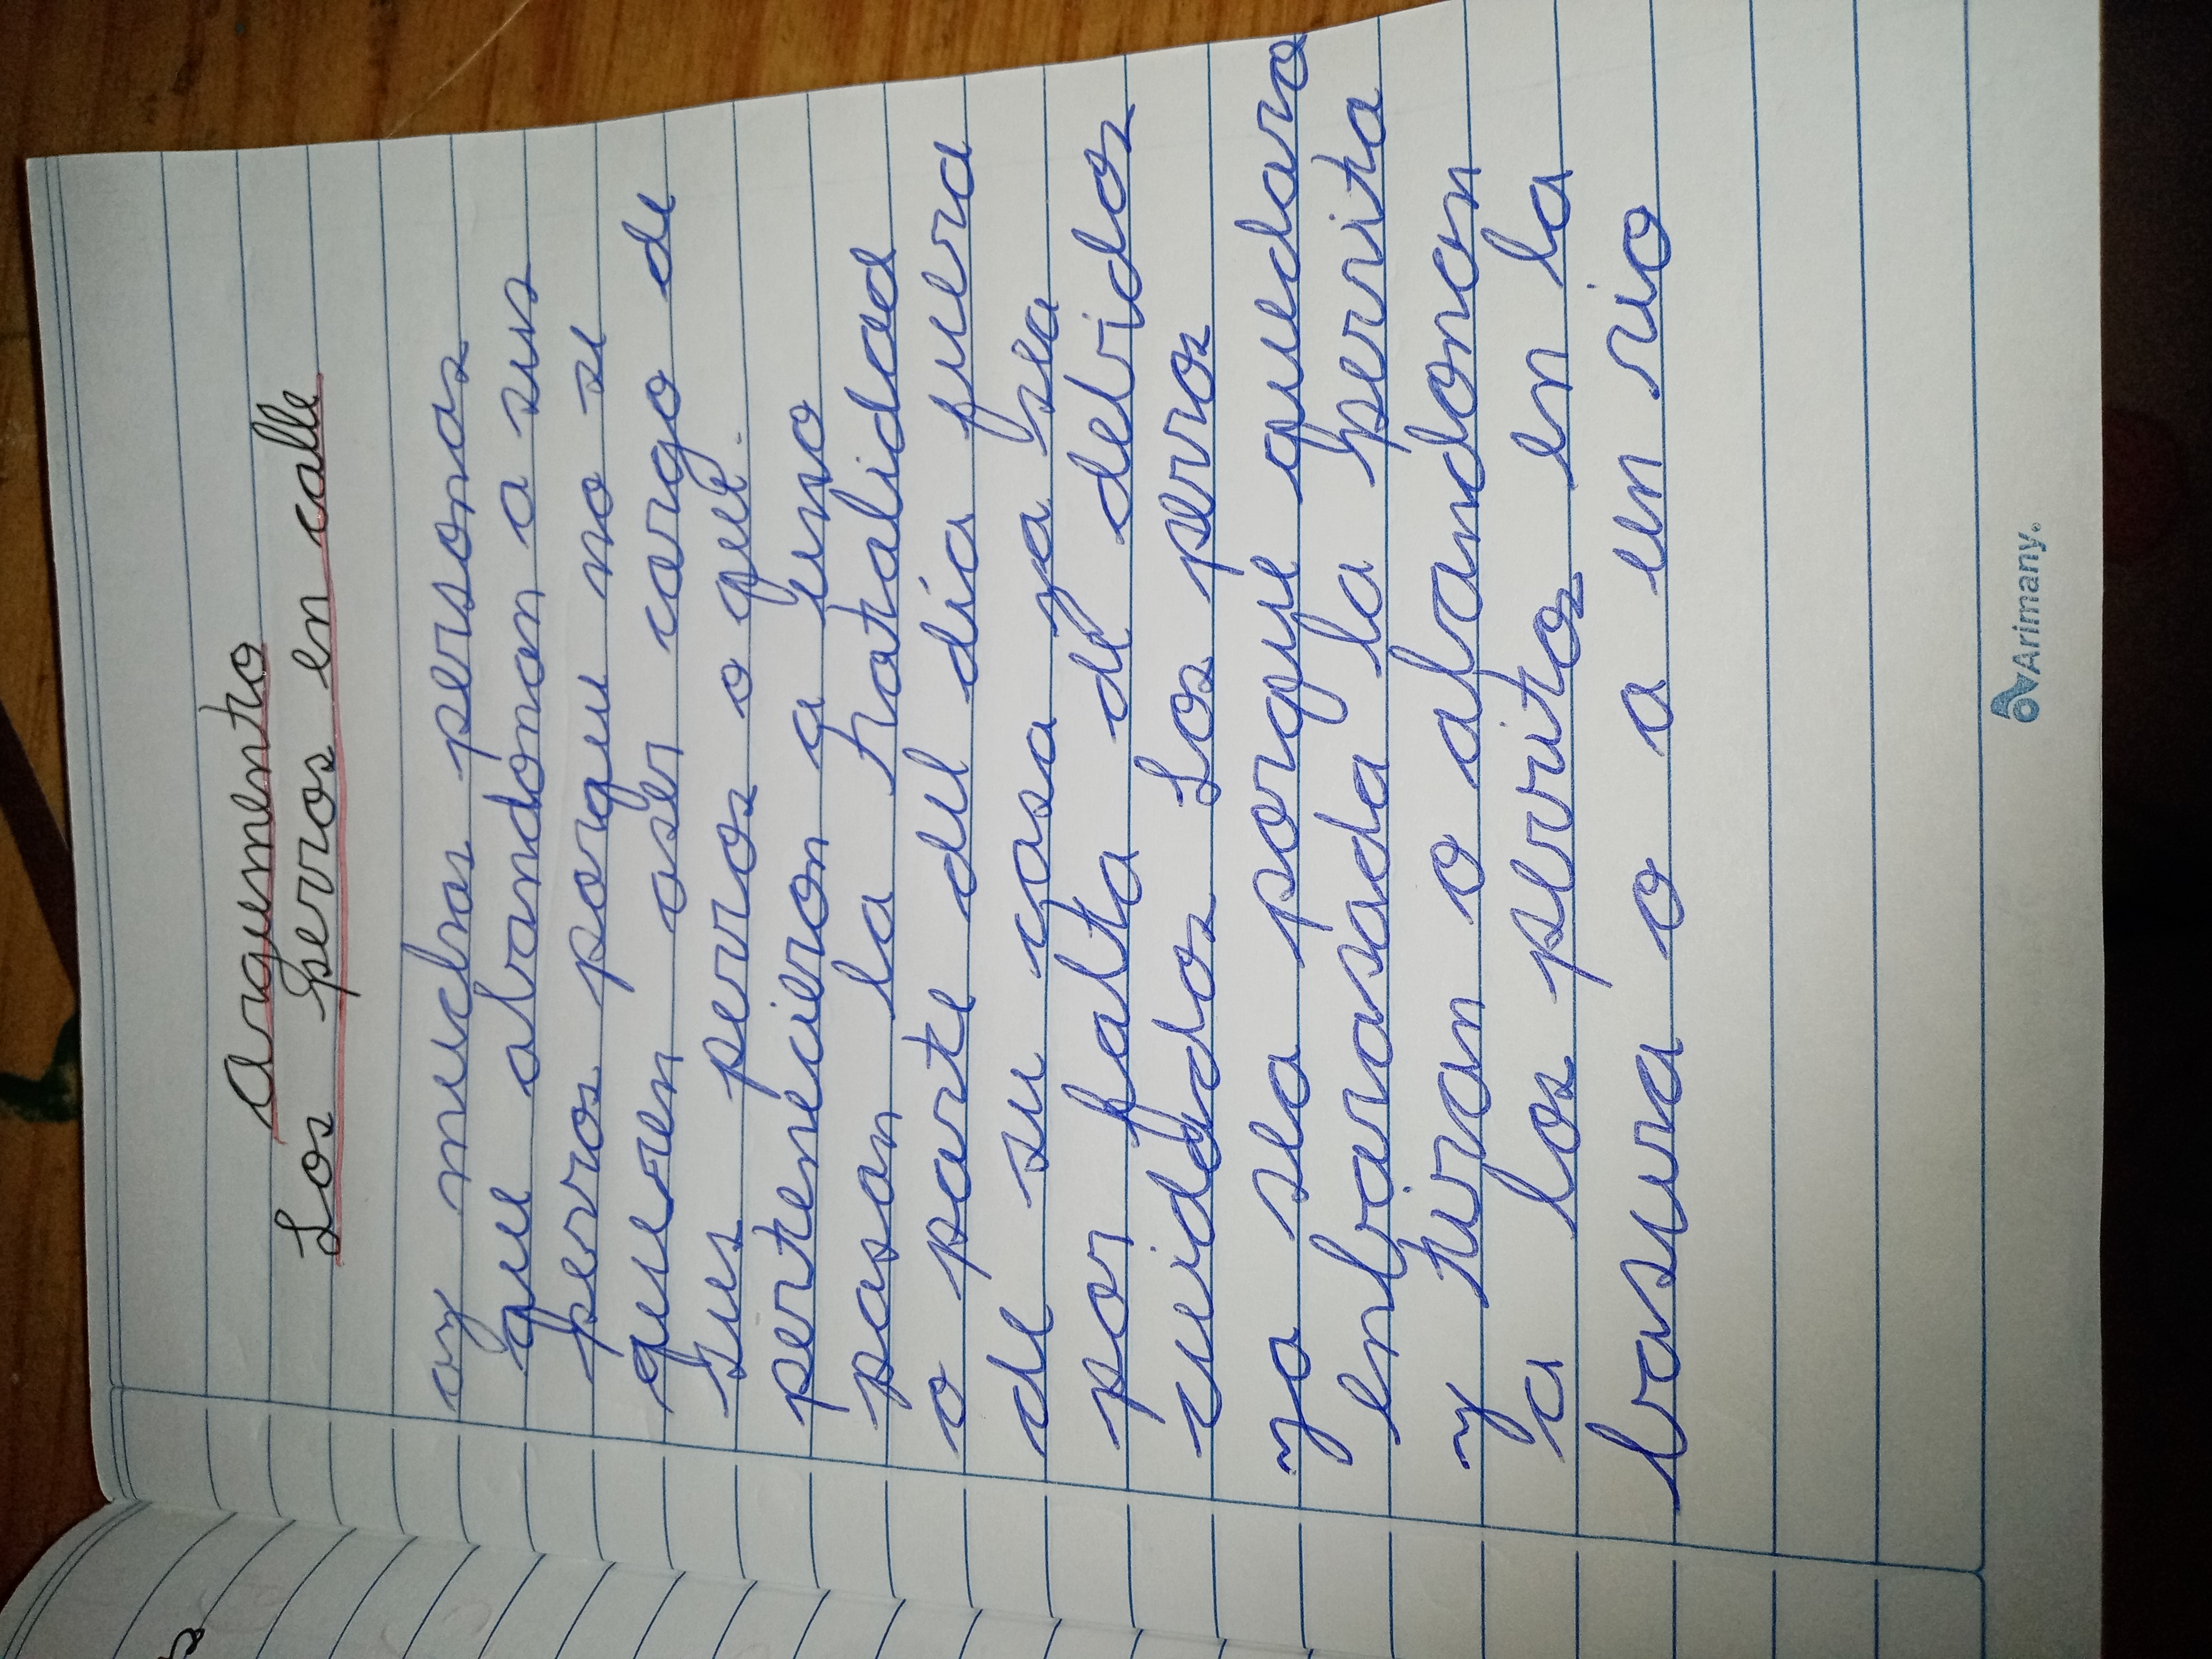 Argumento
Los perros en calle
ay muchas personas
que abandonan a sus
perros porque no se
quieren aser cargo de
sus perros o que
pertenecieron a uno
pasan la natalidad
o parte del día fuera
de su casa ya sea
por falta de debidos
cuidados Los perros
ya sea porque quedaro
enbarasada la perrita
y tiran o abandonan
a los perritos en la
basura o a un rio
Arimany